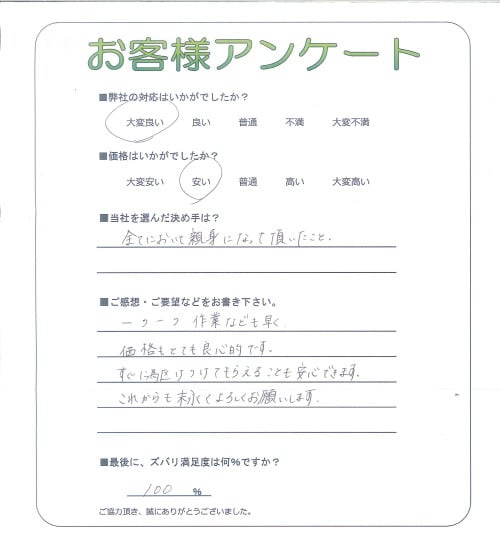 お客様アンケート
■弊社の対応はいかがでしたか？
大変良い 良い 普通 不満 大変不満
■価格はいかがでしたか？
大変安い 安い 普通 高い 大変高い
■当社を選んだ決め手は？
全てにおいて親身になって頂いたこと。
■ご感想・ご要望などをお書き下さい。
一つ一つ 作業なども早く
価格もとても良心的です。
すぐに駆けつけてもらえることも安心できます。
これからも末永くよろしくお願いします。
■最後に、ズバリ満足度は何%ですか？
100 %
ご協力頂き、誠にありがとうございました。